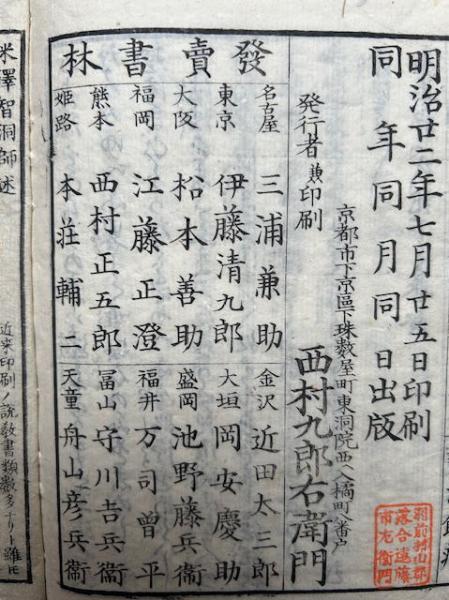 明治廿二年七月廿五日印刷
同年同月同日出版
京都市下京區下珠数屋町東洞院西入橘町八番戸
発行者兼印刷 西村九郎右衛門
發賣書林
名古屋 三浦兼助
金沢 近田太三郎
東京 伊藤清九郎
大垣 岡安慶助
大阪 松本善助
盛岡 池野藤兵衞
福岡 江藤正澄
福井 万司曽平
熊本 西村正五郎
冨山 守川吉兵衞
姫路 本荘輔二
天童 舟山彦兵衞
米澤智洞師述
近来印刷ノ説教書類数多ナリト雖モ
落合遠藤
市左衞門